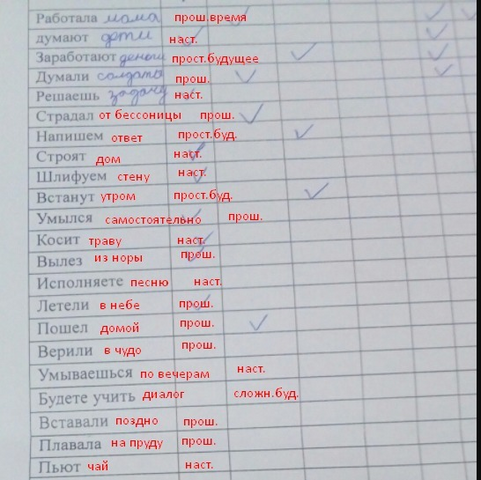 Работала мама прош.время
думают дети наст.
Заработают деньги прост.будущее
Думали солдаты прош.
Решаешь задачу наст.
Страдал от бессоницы прош.
Напишем ответ прост.буд.
Строят дом наст.
Шлифуем стену наст.
Встанут утром прост.буд.
Умылся самостоятельно прош.
Косит траву наст.
Вылез из норы прош.
Исполняете песню наст.
Летели в небе прош.
Пошел домой прош.
Верили в чудо прош.
Умываешься по вечерам наст.
Будете учить диалог сложн.буд.
Вставали поздно прош.
Плавала на пруду прош.
Пьют чай наст.